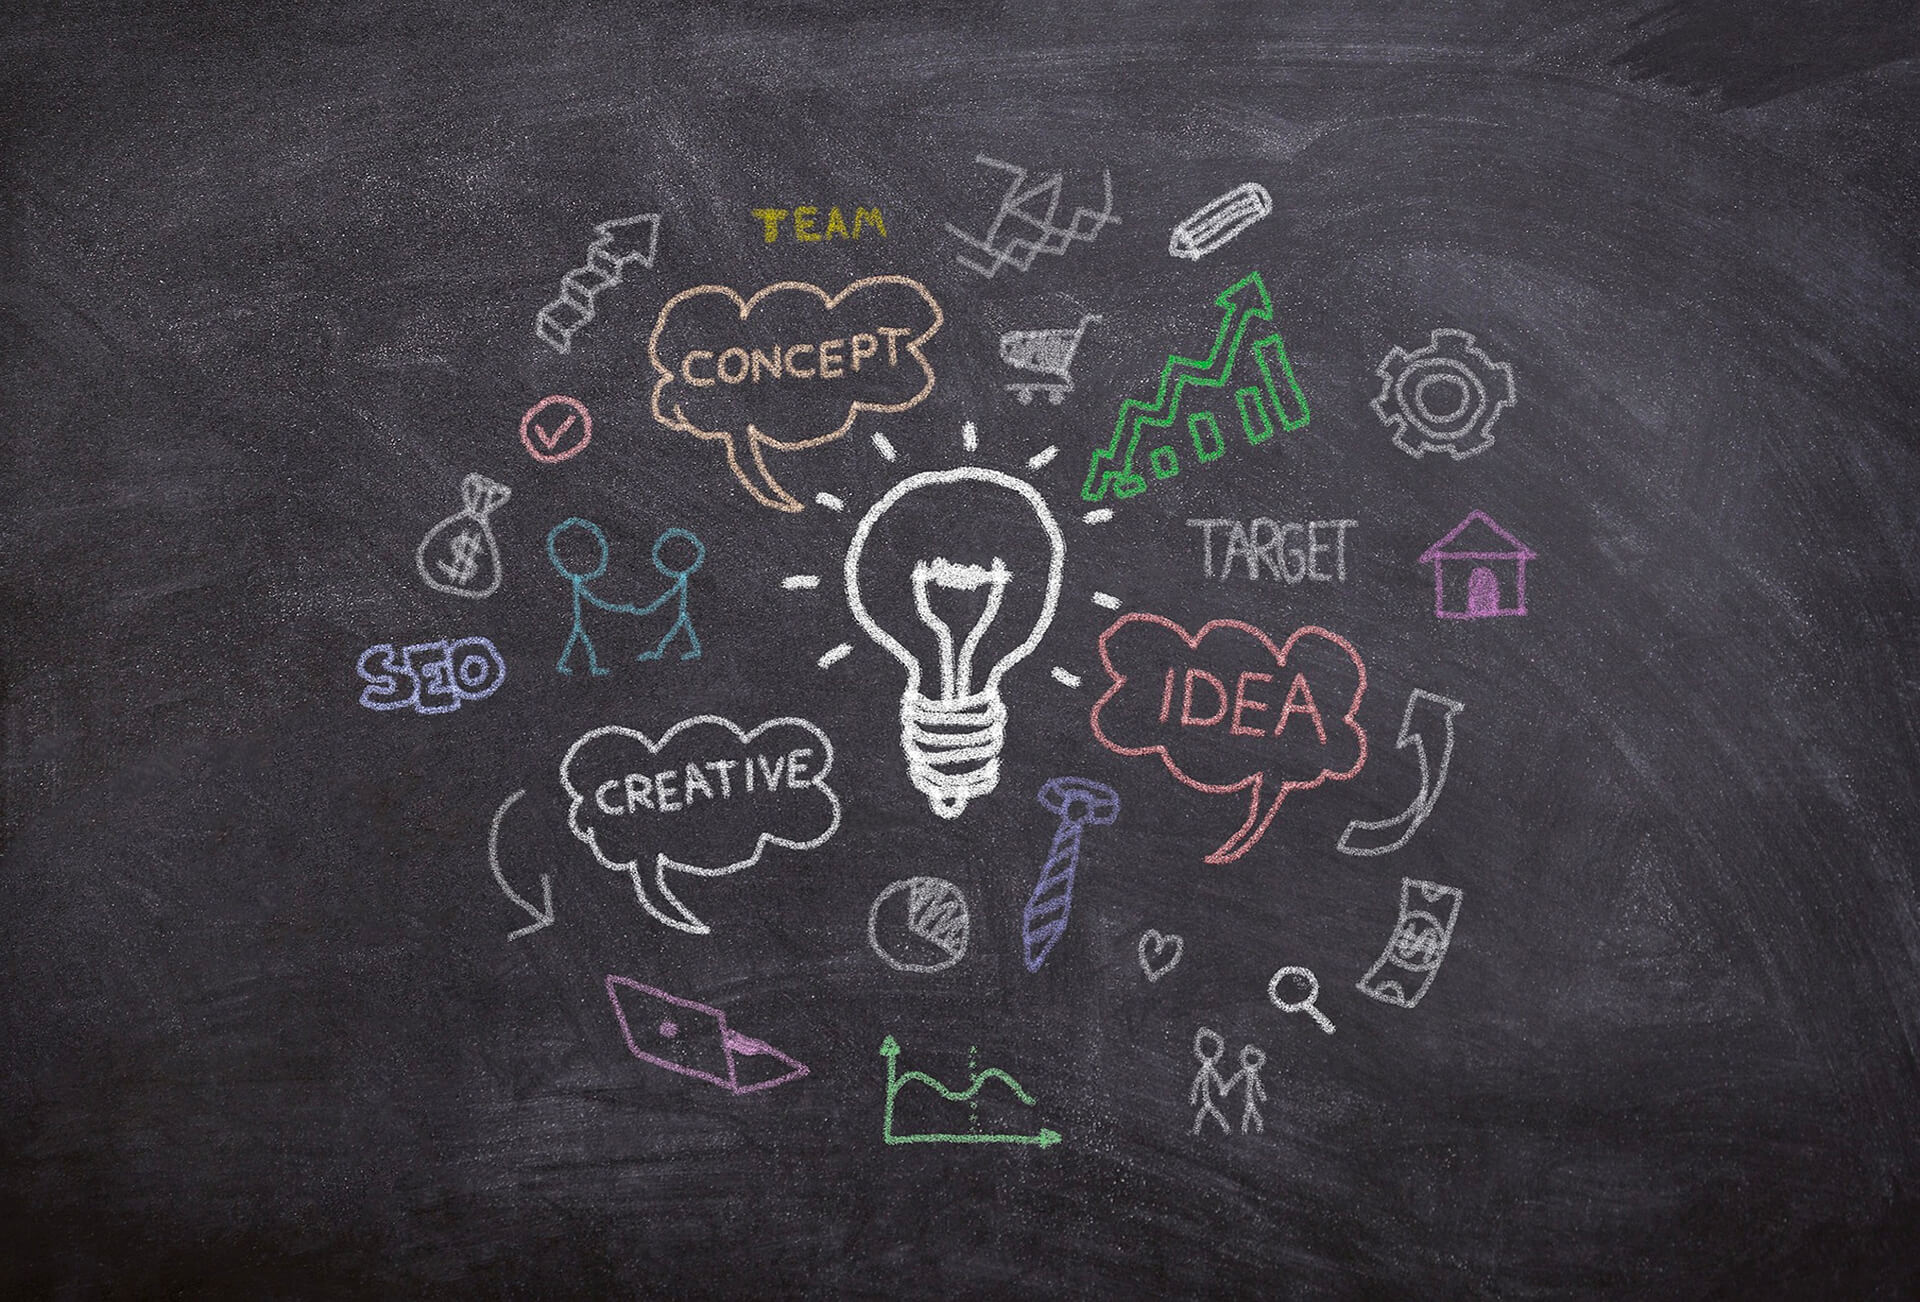 TEAM
CONCEPT
TARGET
$
SEO
IDEA
CREATIVE
$